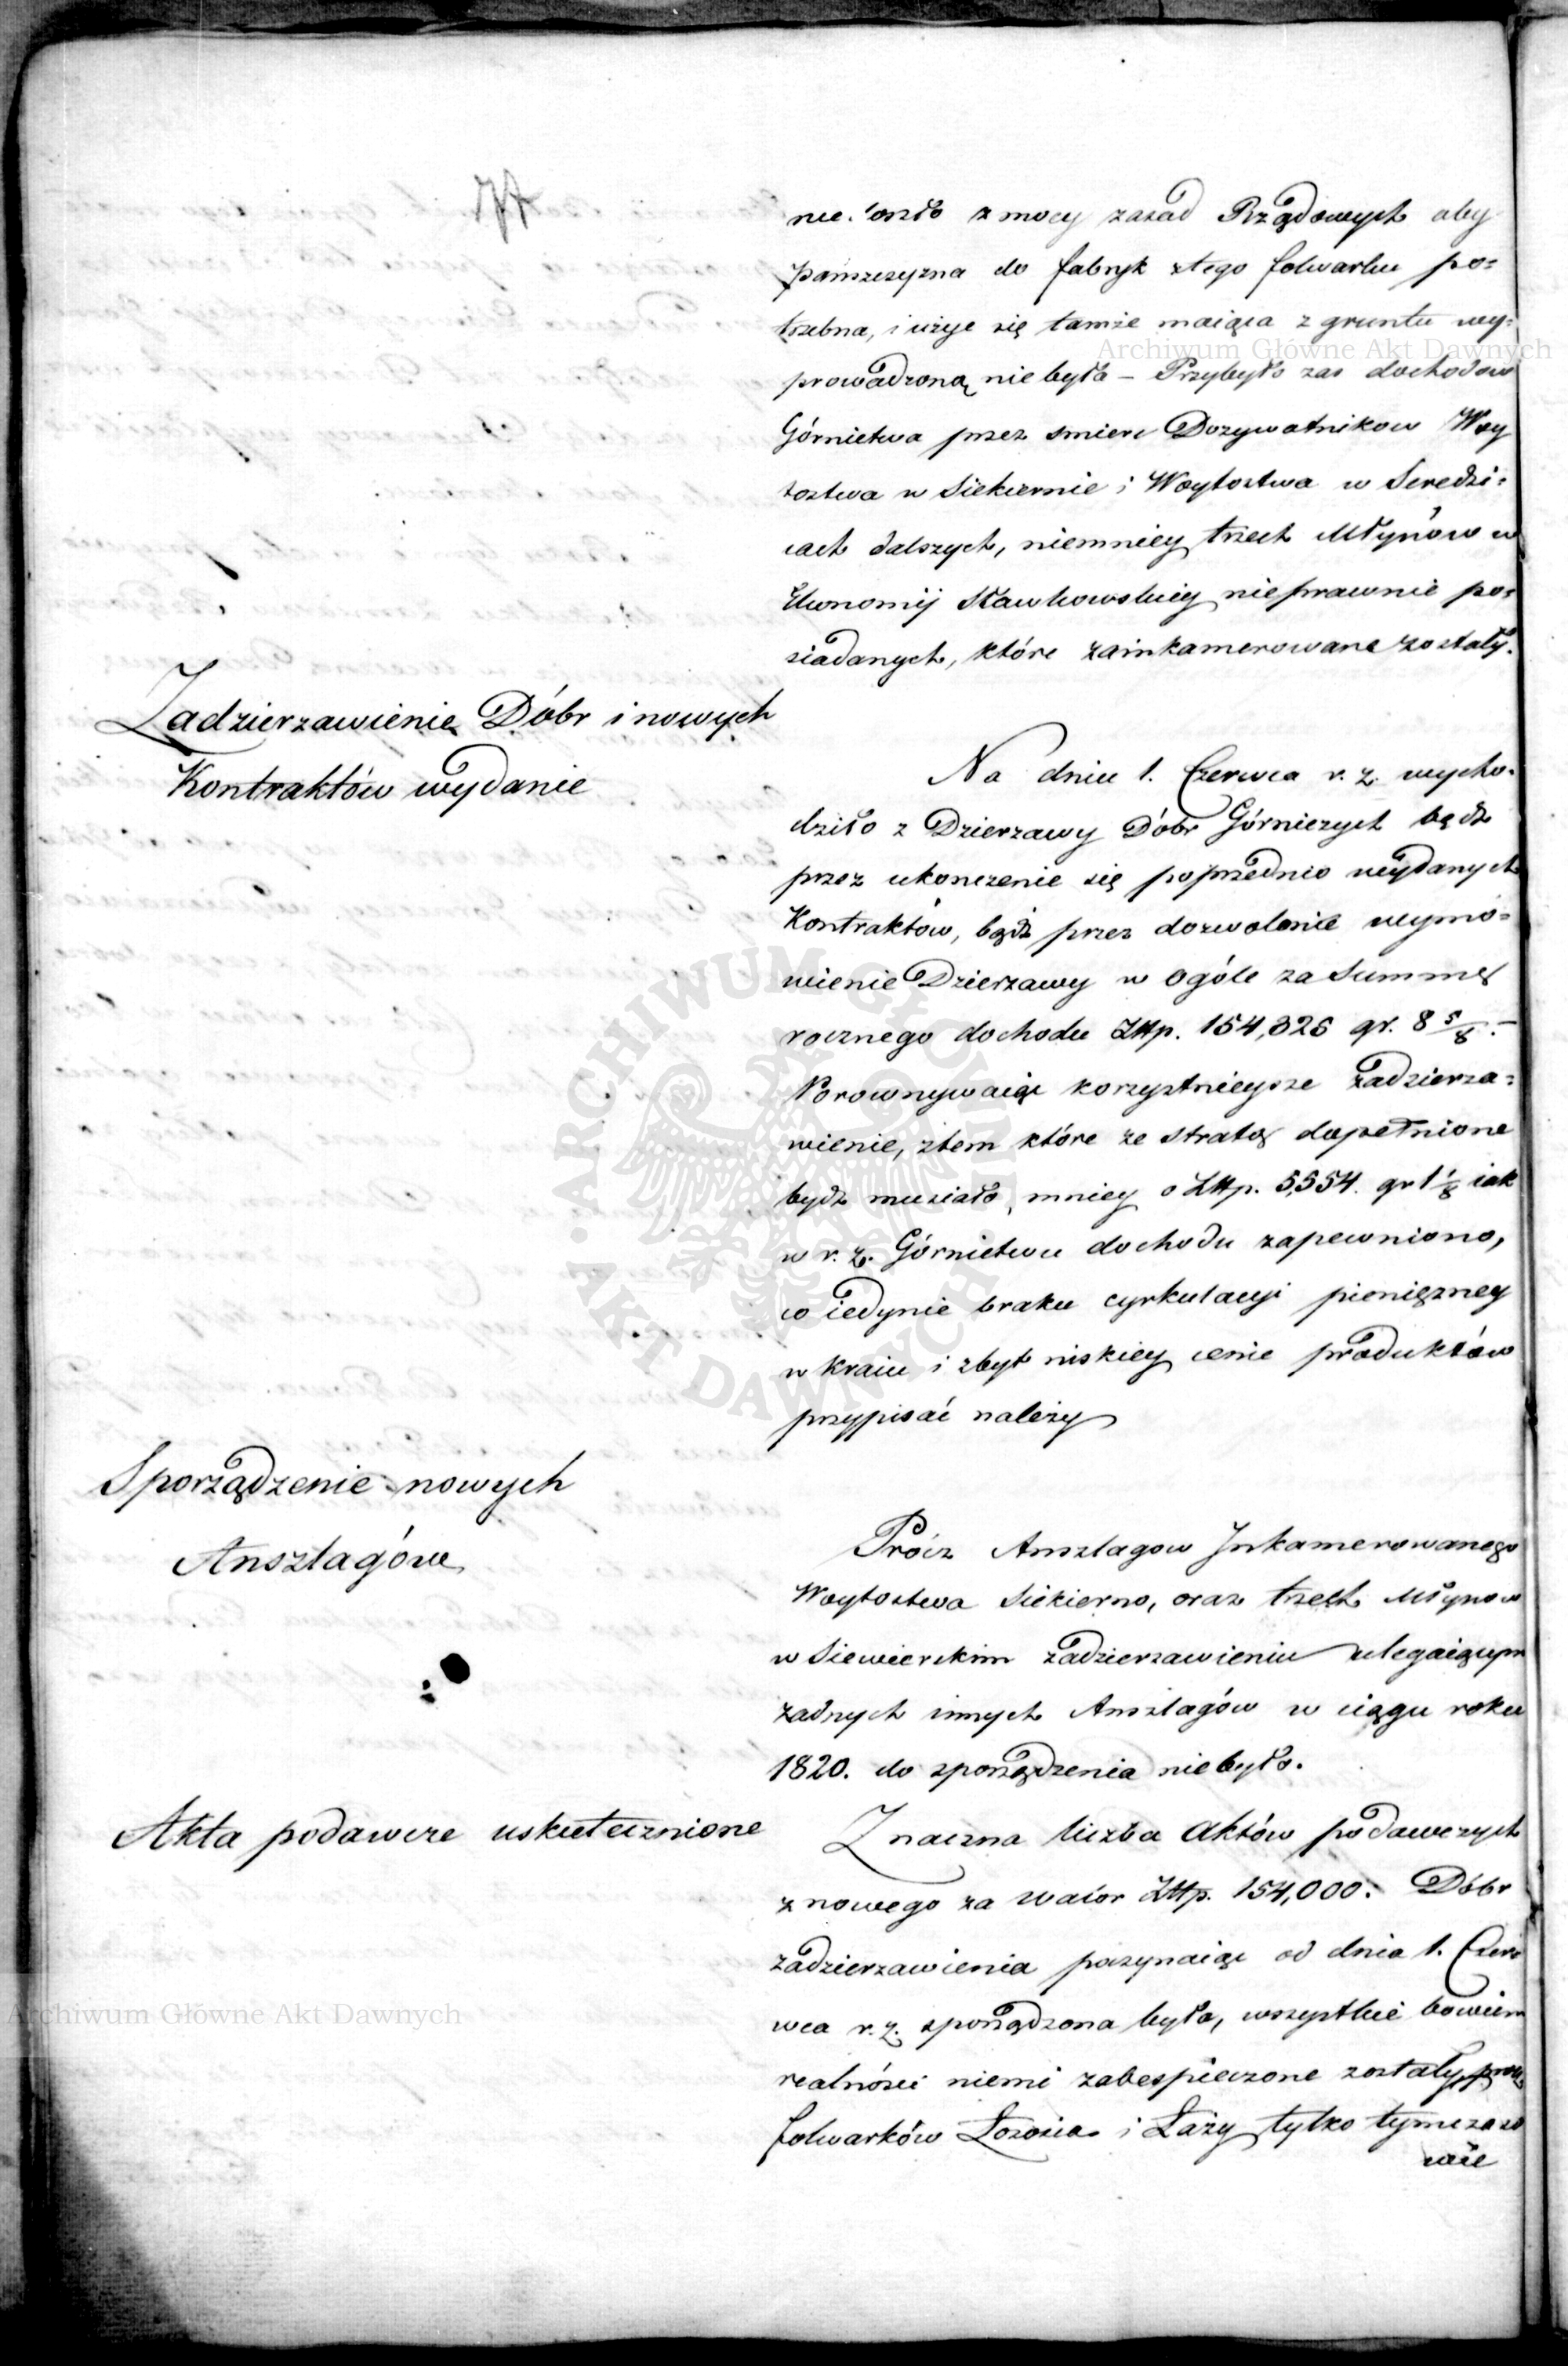 zmocy zasad Rządowych aby
Pańszczyzna do fabryk ztego folwarku po=
trzebna, i użyć się tamże maiąca z gruntu wy=
prowadzoną niebyła – Przybyło zas dochodow
Górnictwa przez smierc Dozywotnikow Woy
tostwa w Siekiernie i Woytostwa w Seredzi=
cach dalszych, niemniey trzech Młynów w
Ekonomij Sławkowskiey nieprawnie po=
siadanych, które zainkamerowane zostały.
Zadzierzawienie Dóbr i nowych
Kontraktów wydanie
Na dniu 1. Czerwca r. z. wycho=
dziło z Dzierzawy Dóbr Górniczych bądz
przez ukonczenie się poprzednio wydanych
Kontraktów, bądz przez dozwolenie wymó=
wienie Dzierzawy w Ogóle za Summę
rocznego dochodu Złtp. 154,326 gr. 8 5/8.–
Porownywaiąc korzystnieysze zadzierza=
wienie, ztem które ze stratą dopełnione
bydz musiało, mniey o Złtp. 5,554. gr 1 1/8 iak
w r. z. Górnictwu dochodu zapewniono,
co iedynie braku cyrkulacyi pieniężney
w Kraiu i zbyt niskiey cenie produktów
przypisać należy
Sporządzenie nowych
Ansztagów
Prócz Ansztagow Inkamerowanego
Woytostwa Siekierno, oraz trzech Młynow
w Siewierskim zadzierzawieniu ulegaiącym
żadnych innych Ansztagów w ciągu roku
1820. do sporządzenia niebyło.
Akta podawcze uskutecznione
Znaczna liczba Aktów podawczych
z nowego za walor Złtp. 154,000. Dóbr
zadzierzawienia poczynaiąc od dnia 1. Czer
wca r. z. sporządzona była, wszystkie bowiem
realności niemi zabespieczone zostały,
folwarków Łososia i Łazy tylko tymczaso
wie
Archiwum Główne Akt Dawnych
Archiwum Główne Akt Dawnych
ARCHIWUM GŁÓWNE AKT DAWNYCH